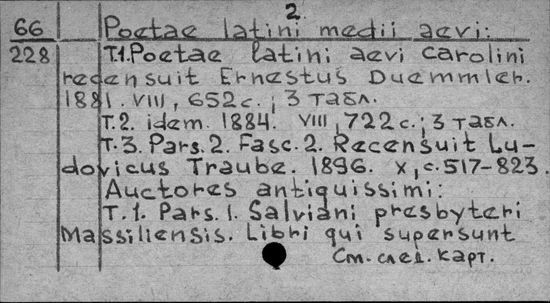 2.
66 Poetae latini medii aevi:
228 T.1. Poetae latini aevi Carolini
recensuit Ernestus Duemmler.
1881. VIII, 652 с.; 3 табл.
T.2. idem. 1884. VIII, 722 с.; 3 табл.
T.3. Pars. 2. Fasc. 2. Recensuit Lu-
dovicus Traube. 1896. X, с. 517-823.
Auctores antiquissimi:
T.1. Pars. 1. Salviani presbyteri
Massiliensis. Libri qui supersunt
См. след. карт.